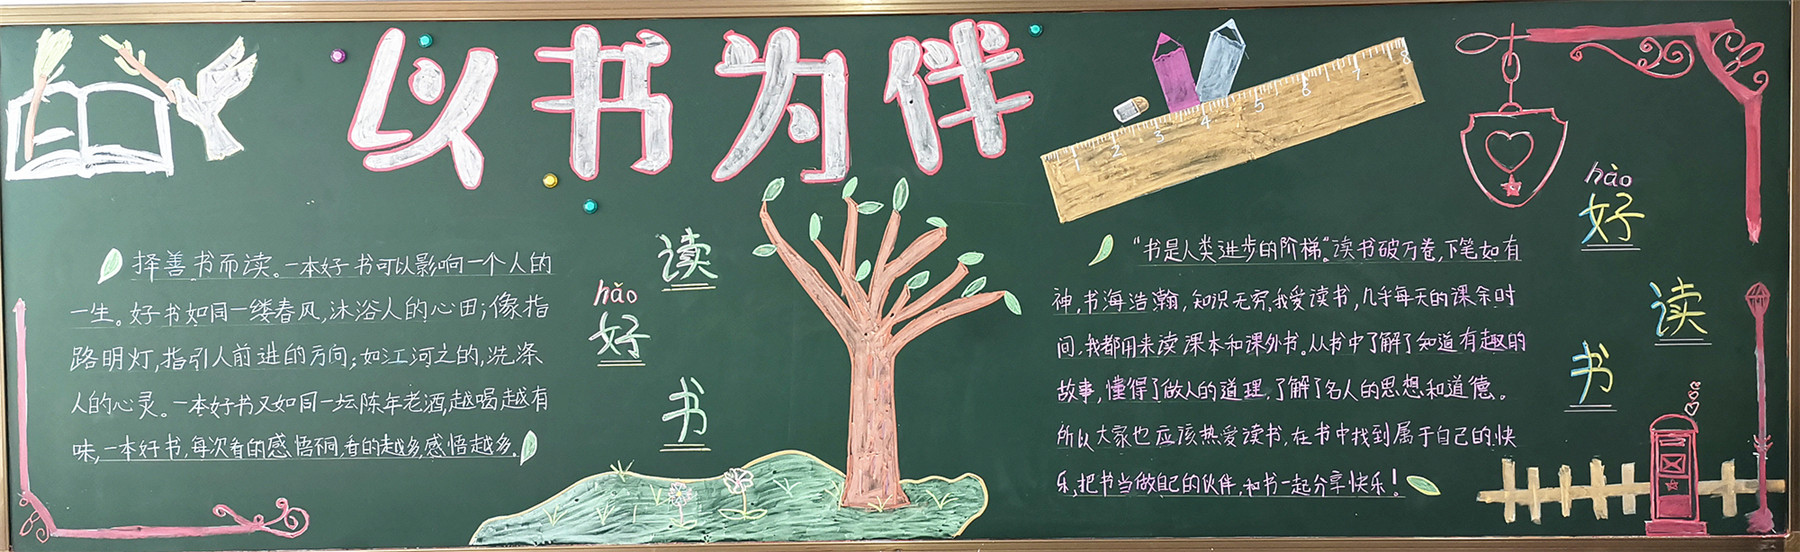 以书为伴
择善书而读。一本好书可以影响一个人的
一生。好书如同一缕春风,沐浴人的心田;像指
路明灯,指引人前进的方向;如江河之的,洗涤
人的心灵。一本好书又如同一坛陈年老酒,越喝越有
味,一本好书,每次看的感悟不同,看的越多,感悟越多。
读
hǎo
好
书
1 2 3 4 5 6 7 8
“书是人类进步的阶梯”。读书破万卷,下笔如有
神,书海浩瀚,知识无穷,我爱读书,几乎每天的课余时
间,我都用来读课本和课外书。从书中了解了知道有趣的
故事,懂得了做人的道理,了解了名人的思想和道德。
所以大家也应该热爱读书,在书中找到属于自己的快
乐,把书当做自己的伙伴,和书一起分享快乐!
hào
好
读
书